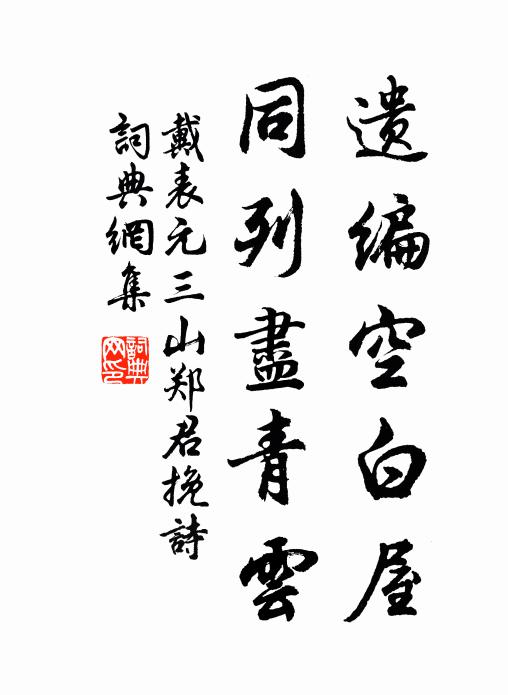 遗编空白屋
同列盡青雲
戴表元三山郑君挽詩
詞典網集
詞典網印